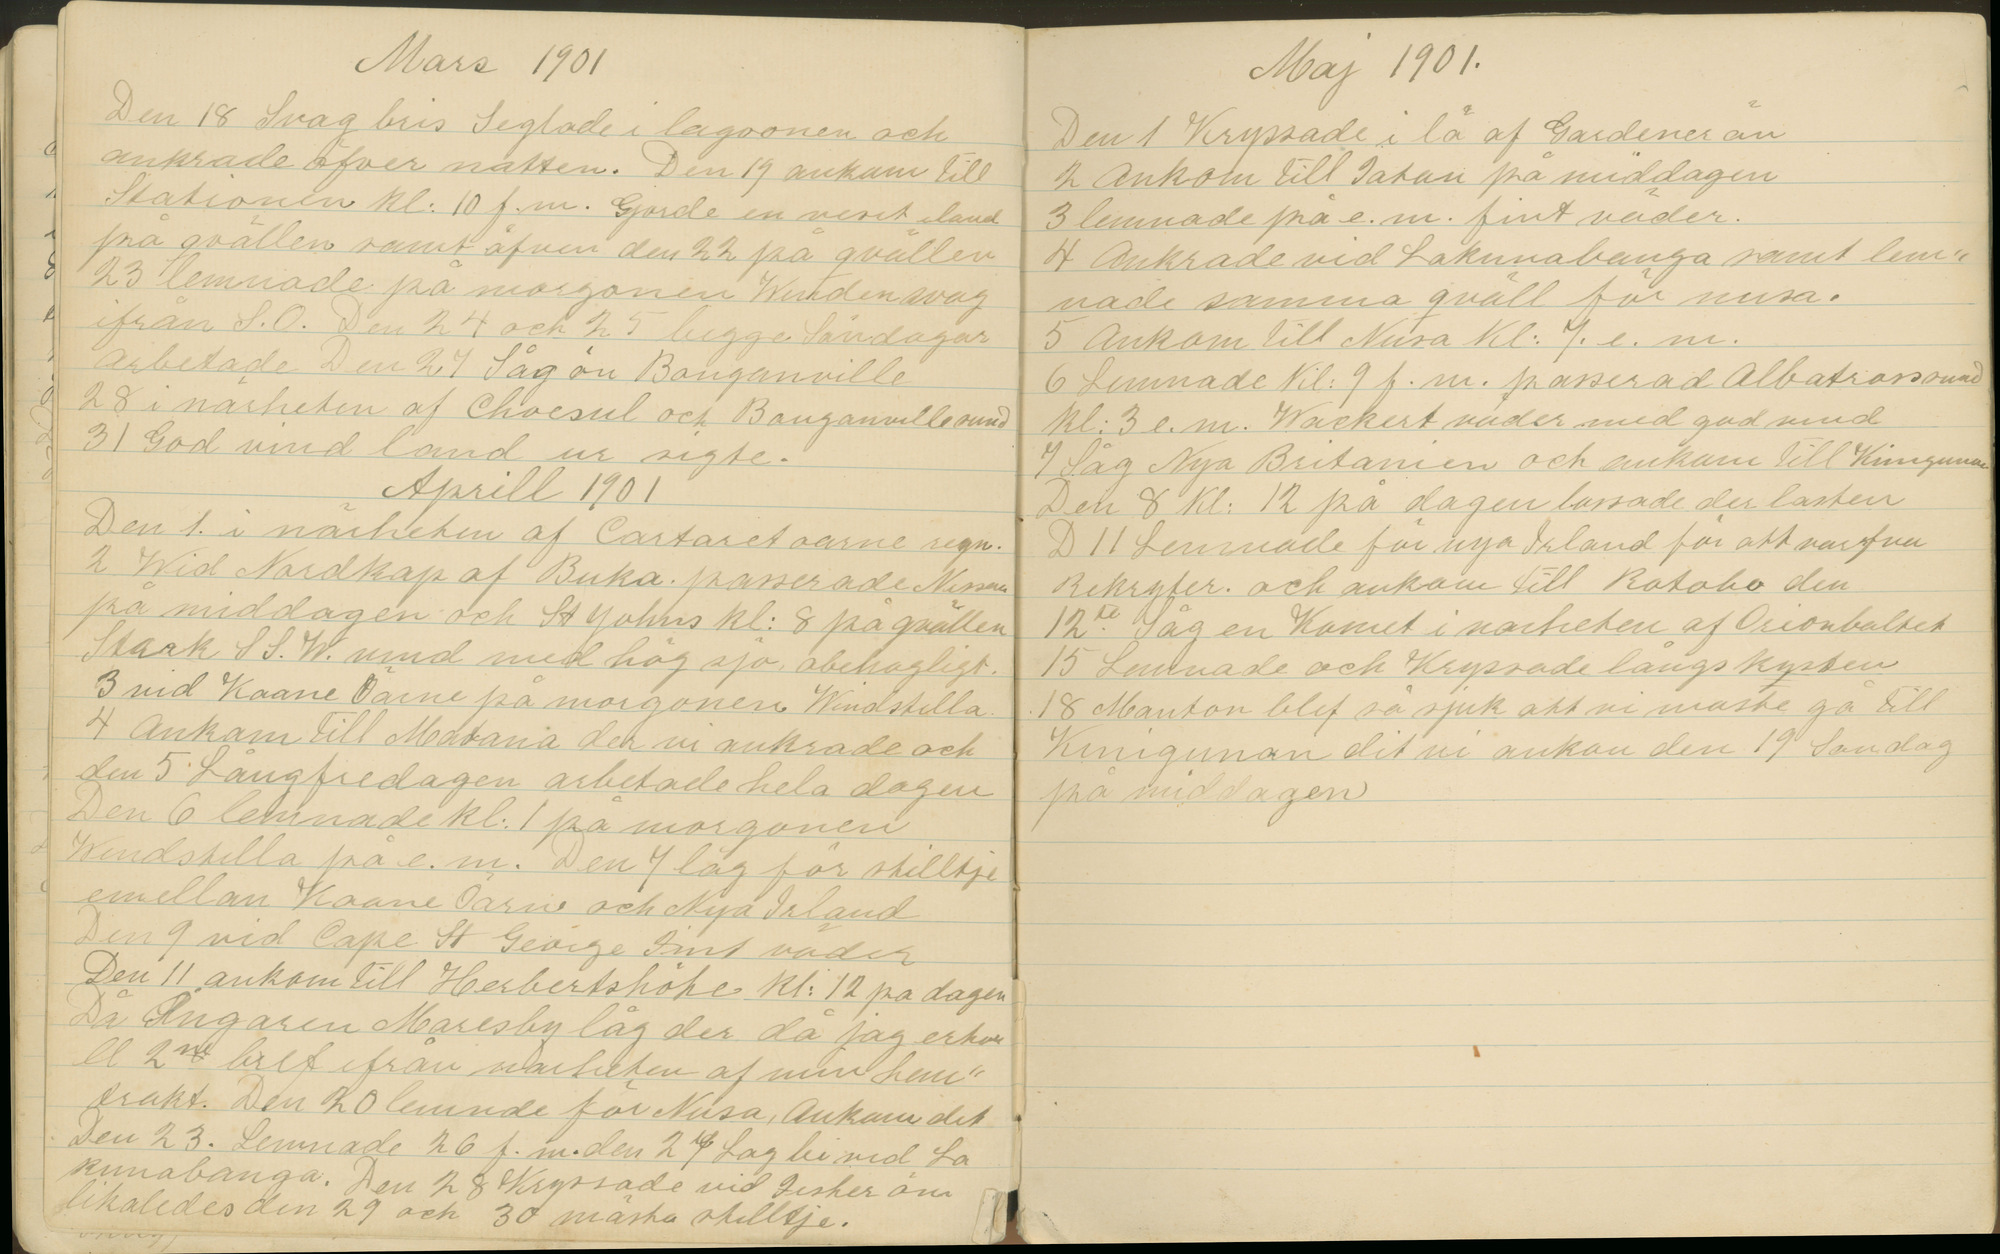 Mars 1901
Den 18 Svag bris Seglade i lagoonen och
ankrade öfver natten. Den 19 ankom till
Stationen kl: 10 f.m. Gjorde en visit iland
på qvällen samt äfven den 22 på qvällen
23 lemnade på morgonen Winden svag
ifrån S.O. Den 24 och 25 begge Söndagar
arbetade Den 27 Såg ön Bauganville
28 i närheten af Choesul och Bauganville sund
31 God vind land ur sigte.
Aprill 1901
Den 1. i närheten af Cartaret öarne regn.
2 Wid Nordkap af Buka. passerade Nissan
på middagen och St Johns kl: 8 på qvällen
Stark S S.W. vind med hög sjö, obehagligt.
3 vid Kaane Öarne på morgonen Windstilla.
4 Ankam till Matana der vi ankrade och
den 5 Långfredagen arbetade hela dagen
Den 6 lemnade kl: 1 på morgonen
Windstilla på e.m. Den 7 låg för stilltje
emellan Kaane Öarne och Nya Irland
Den 9 vid Cape St George Fint väder
Den 11 ankom till Herbertshöhe kl: 12 på dagen
Då Ångaren Maresby låg der då jag erhöe
ll 2ne bref ifrån närheten af min hem"
trakt. Den 20 lemnde för Nusa, Ankom dit
Den 23. Lemnade 26 f.m. den 27 Låg bi vid La
kunabanga. Den 28 Kryssade vid Fisher ön
likaledes den 29 och 30 mästa stilltje.
Maj 1901.
Den 1 Kryssade i lä af Gardener ön
2 Ankom till Tatau på middagen
3 lemnade på e.m. fint väder.
4 Ankrade vid Lakunabanga samt lem"
nade samma qväll för nusa.
5 Ankom till Nusa kl: 7. e.m.
6 Lemnade kl: 9 f.m. passerad Albatross sund
kl: 3 e.m. Wackert väder med god vind
7 Såg Nya Britanien och ankom till Kinigunan
Den 8 Kl: 12 på dagen lossade der lasten
D 11 Lemnade för nya Irland för att varfva
Rekryter. och ankom till Kotobo den
12te. Såg en Komet i närheten af Orionbältet
15 Lemnade och Kryssade långs kysten
18 Manton blef så sjuk att vi måste gå till
Kinigunan dit vi ankom den 19 Söndag
på middagen